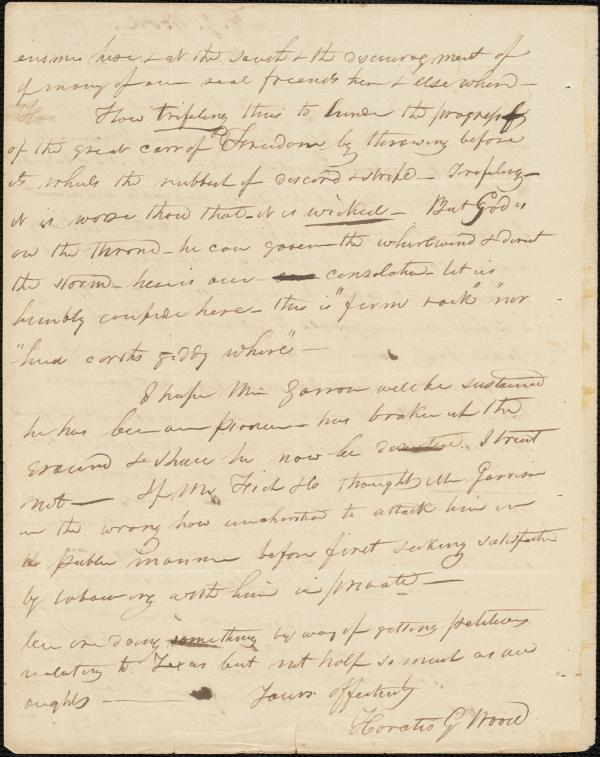 enimies here & at the south & the discouragment of
of many of our real friends here & else where —
How trifeling thus to hinder the progress of
of the great carr of Freedom by throwing before
its wheels the rubbest of discord & strife — Trifeling —
it is worse than that — it is wicked — But God is
on the throne — he can govern the whirlwind & direct
the storm — here is our consolation — let us
humbly confide here — this is "firm rock" "nor
"earths giddy whirl" —
I hope Mr Garrison will be sustained
he has been our pioneer — has broken up the
ground & shall he now be deserted I trust
not — If Mr Fitch & Co thought Mr Garrison
in the wrong how unchristian to attack him in
a public manner before first seeking satisfaction
by labouring with him in private —
We are doing something by way of getting petitions
relating to Texas but not half so much as we
ought — Yours affectionately
Horatio G Wood